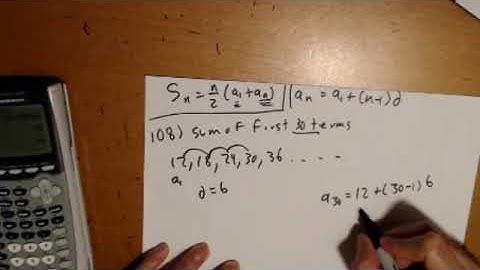 Sₙ = n/2 (a₁ + aₙ) aₙ = a₁ + (n-1)d
108) Sum of First 30 terms
12, 18, 24, 30, 36 . . . .
a₁
d = 6
a₃₀ = 12 + (30-1) 6